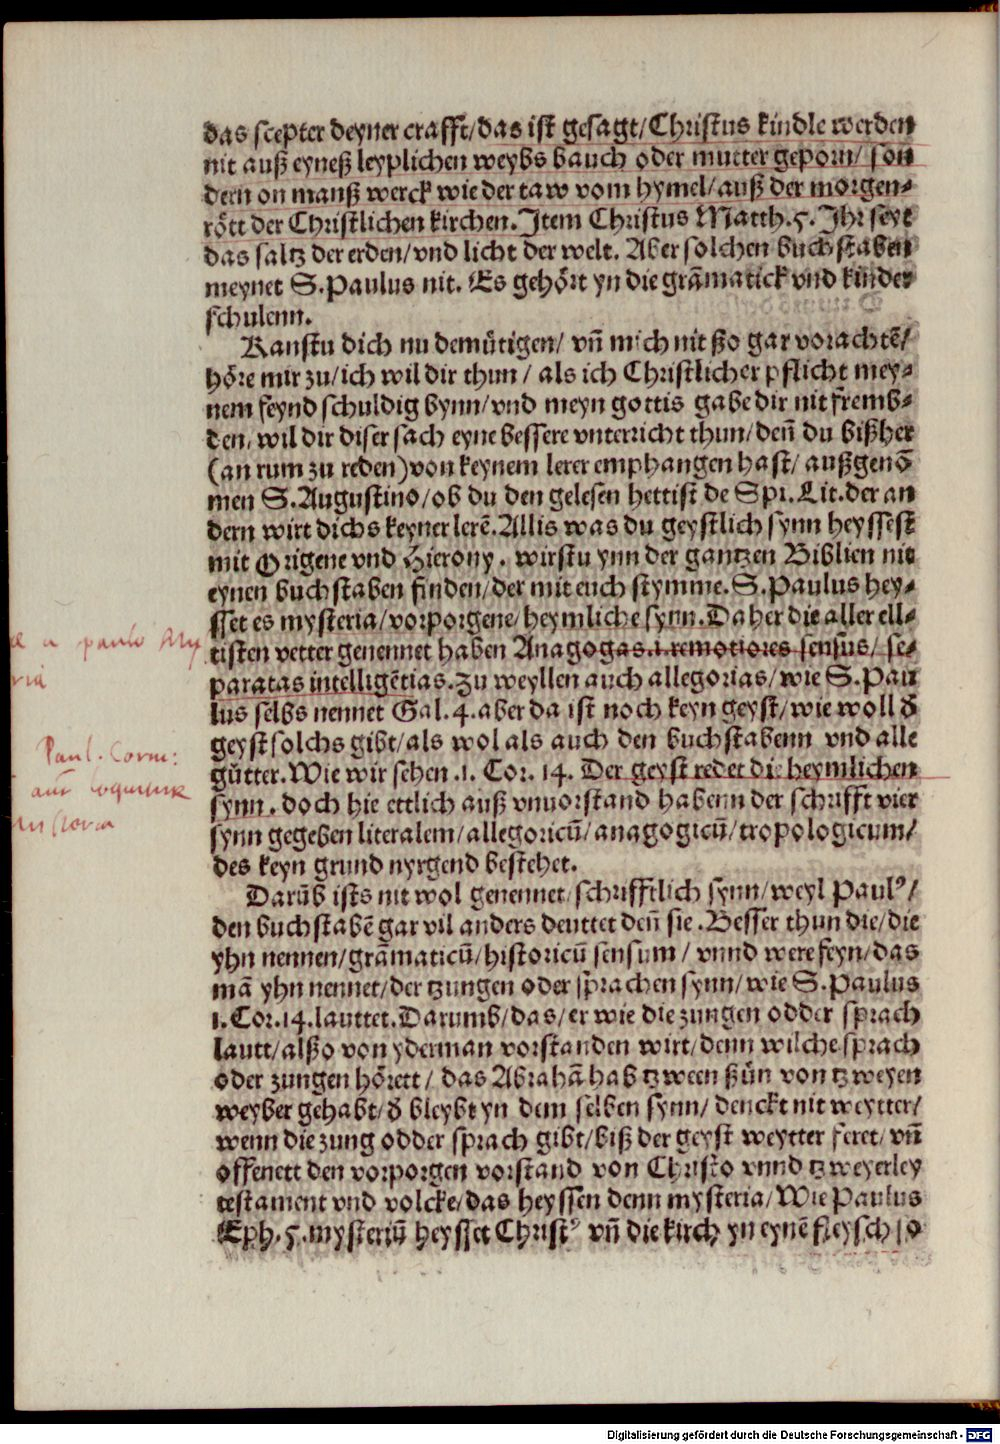 das scepter deyner crafft/das ist gesagt/Christus kindle werden
nit auß eyneß leyplichen weybs bauch oder mutter geporn/ son
dern on manß werck wie der taw vom hymel/auß der morgen⸗
rött der Christlichen kirchen. Item Christus Matth.5. Ihr seyt
das saltz der erden/vnd licht der welt. Aber solchen buchstaben
meynet S.Paulus nit. Es gehört yn die grãmatick vnd kinder
schulenn.
Kanstu dich nu demütigen/ vñ mich nit ßo gar vorachtẽ/
höre mir zu/ich wil dir thun/ als ich Christlicher pflicht mey⸗
nem feynd schuldig bynn/vnd meyn gottis gabe dir nit fremb⸗
den, wil dir diser sach eyne bessere vnterricht thun/deñ du bißher
(an rum zu reden)von keynem lerer emphangen hast/ außgenõ
men S.Augustino/ob du den gelesen hettist de Spi.Lit.der an
dern wirt dichs keyner lerẽ.Allis was du geystlich synn heyssest
mit Origene vnd Hierony. wirstu ynn der gantzen Biblien nit
eynen buchstaben finden/der mit euch stymme.S.Paulus hey⸗
sset es mysteria/vorporgene/heymliche synn.Daher die aller ell⸗
tisten vetter genennet haben Anagogas.i.remotiores sensus/ se⸗
paratas intelligẽtias.Zu weyllen auch allegorias/wie S.Pau
lus selbs nennet Gal.4.aber da ist noch keyn geyst/wie woll d̛
geyst solchs gibt/als wol als auch den buchstabenn vnd alle
gütter.Wie wir sehen .1. Cor. 14. Der geyst redet die heymlichen
synn. doch hie ettlich auß vnuorstand habenn der schrifft vier
synn gegeben literalem/allegoricũ/anagogicũ/tropologicum/
des keyn grund nyrgend bestehet.
Darũb ists nit wol genennet/schrifftlich synn/weyl Paulꝰ/
den buchstabẽ gar vil anders deuttet deñ sie.Besser thun die/die
yhn nennen/grãmaticũ/historicũ sensum/ vnnd were feyn/das
mã yhn nennet/der tzungen oder sprachen synn/wie S.Paulus
1.Cor.14.lauttet.Darumb/das/er wie die zungen odder sprach
lautt/alßo von yderman vorstanden wirt/denn wilche sprach
oder zungen hörett/ das Abrahã hab tzween ßün von tzweyen
weyber gehabt/d̛ bleybt yn dem selben synn/ denckt nit weytter/
wenn die zung odder sprach gibt/biß der geyst weytter feret/vñ
offenett den vorporgen vorstand von Christo vnnd tzweyerley
testament vnd volcke/das heyssen denn mysteria/Wie Paulus
Eph.5.mysteriũ heysset Christꝰ vñ die kirch yn eynẽ fleysch/o
a paulo My
ria
Paul. Corin:
Digitalisierung gefördert durch die Deutsche Forschungsgemeinschaft - DFG